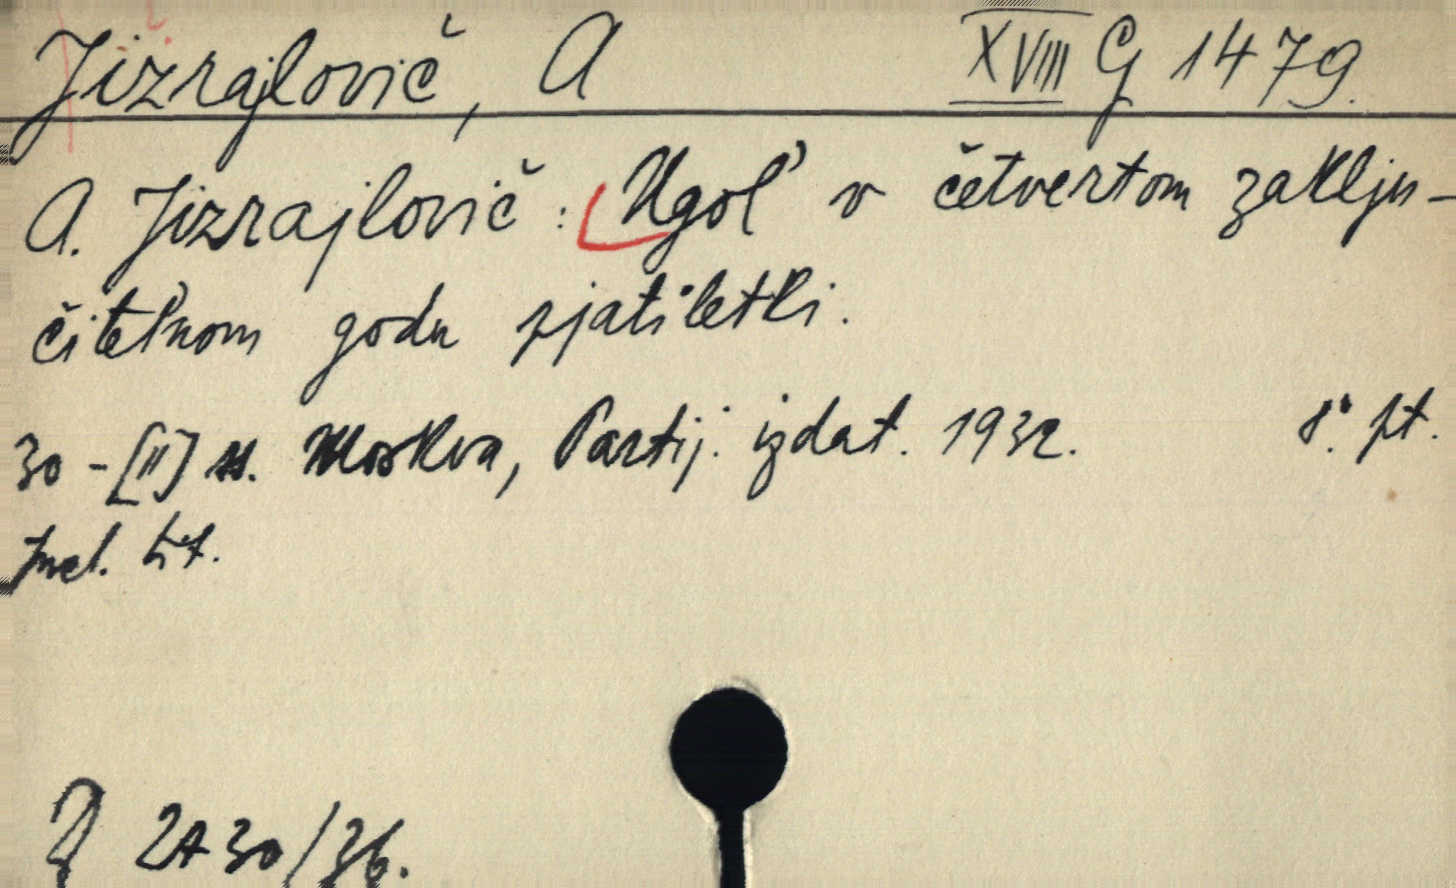 Jizrajlovič, A XVIII G 1479.
A. Jizrajlovič: Ugol' v četvertom zaključ-
čitel'nom godu pjatiletki.
30-[II] ss. Moskva, Partij. izdat. 1932. 8°. pt.
lit.
2A30/36.